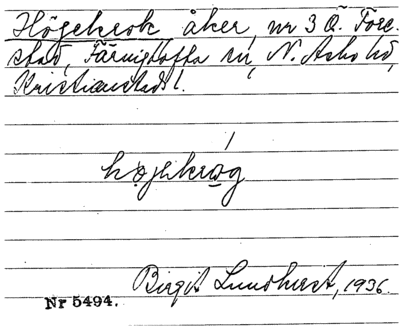 Högekrok åker, nr 3 Ö. Fore-
stad, Färingtofta sn, N. Åsbo hd,
Kristianstads l.
højekrǫg
Birgit Lundkvist, 1936.
Nr 5494.